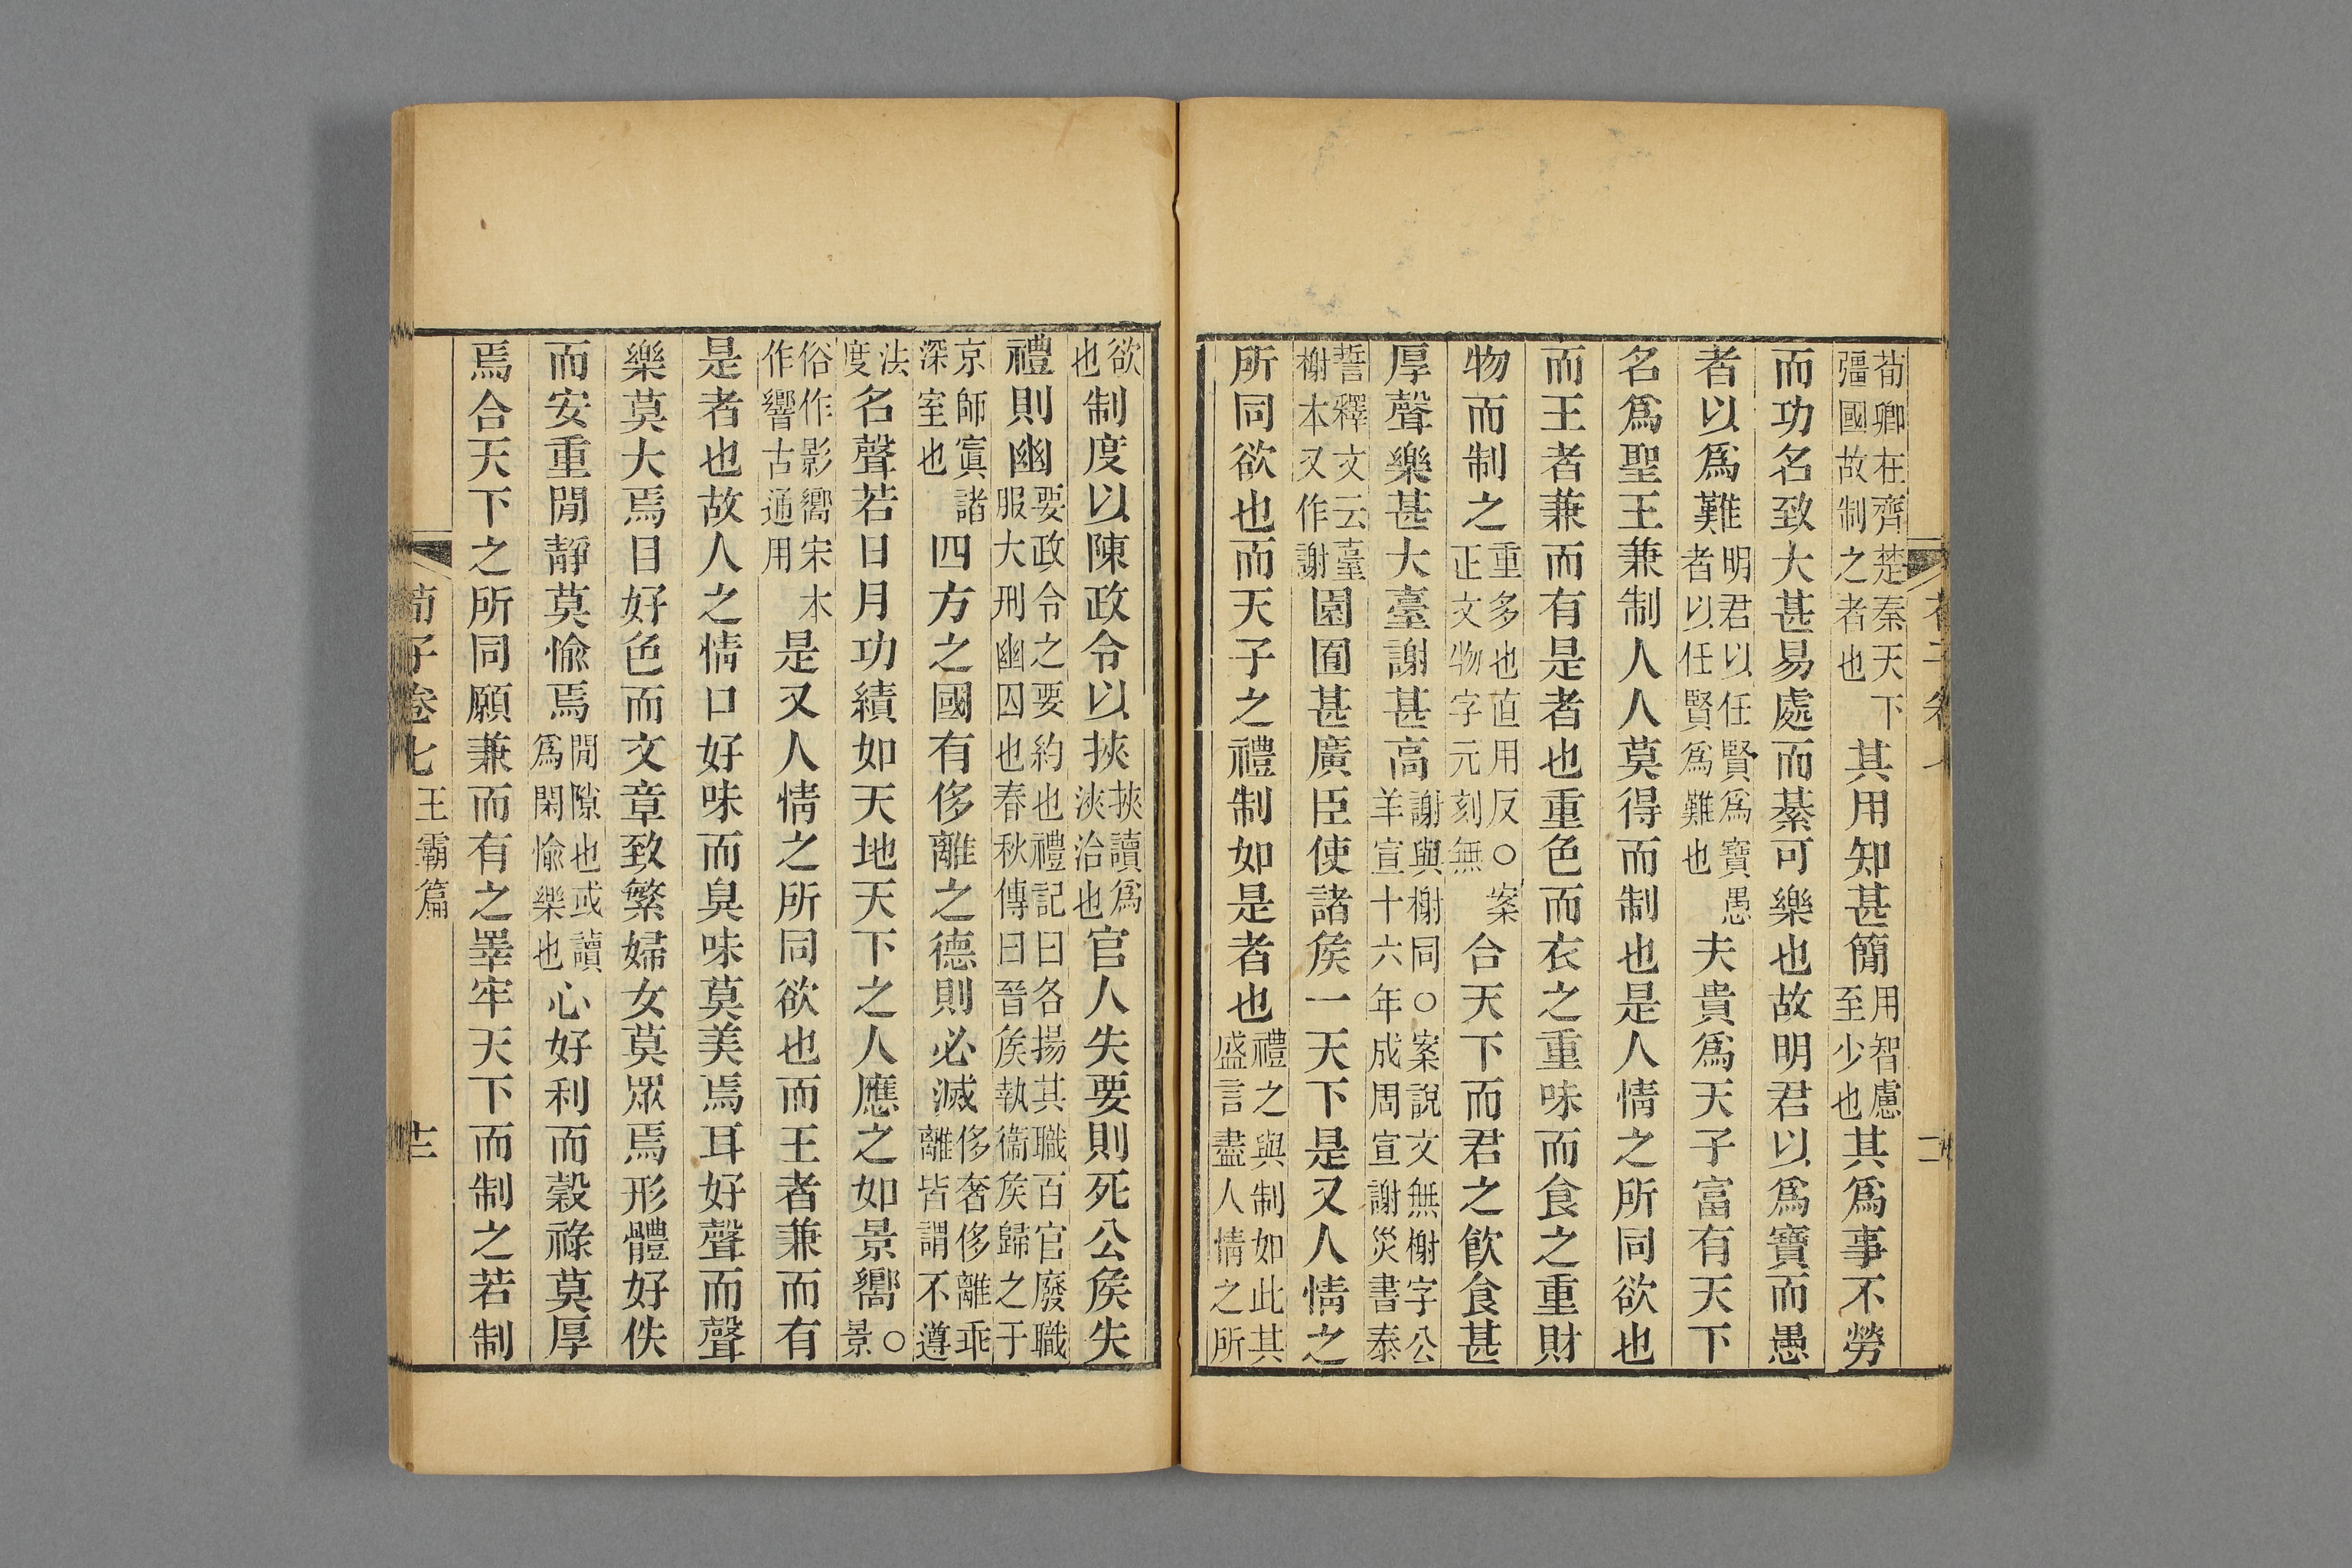 荀卿在齊楚秦天下彊國故制之者也其用知甚簡用智慮至少也其爲事不勞
而功名致大甚易處而綦可樂也故明君以爲寶而愚
者以爲難明君以任賢爲寶愚者以任賢爲難也夫貴爲天子富有天下
名爲聖王兼制人人莫得而制也是人情之所同欲也
而王者兼而有是者也重色而衣之重味而食之重財
物而制之重多也直用反○案正文物字元刻無合天下而君之飮食甚
厚聲樂甚大臺謝甚高謝與榭同○案說文無榭字公羊宣十六年成周宣謝災書泰
誓釋文云臺榭本又作謝園囿甚廣臣使諸矦一天下是又人情之
所同欲也而天子之禮制如是者也禮之與制如此其盛言盡人情之所
欲也制度以陳政令以挾挾讀爲浹浹洽也官人失要則死公矦失
禮則幽要政令之要約也禮記曰各揚其職百官廢職服大刑幽囚也春秋傳曰晉矦執衞矦歸之于
京師寘諸深室也四方之國有侈離之德則必滅侈奢侈離乖離皆謂不遵
法度名聲若日月功績如天地天下之人應之如景嚮○景
俗作影嚮宋本作響古通用是又人情之所同欲也而王者兼而有
是者也故人之情口好味而臭味莫美焉耳好聲而聲
樂莫大焉目好色而文章致繁婦女莫眾焉形體好佚
而安重閒靜莫愉焉閒隙也或讀爲閑愉樂也心好利而穀祿莫厚
焉合天下之所同願兼而有之睪牢天下而制之若制
荀子卷七 王霸篇 十二